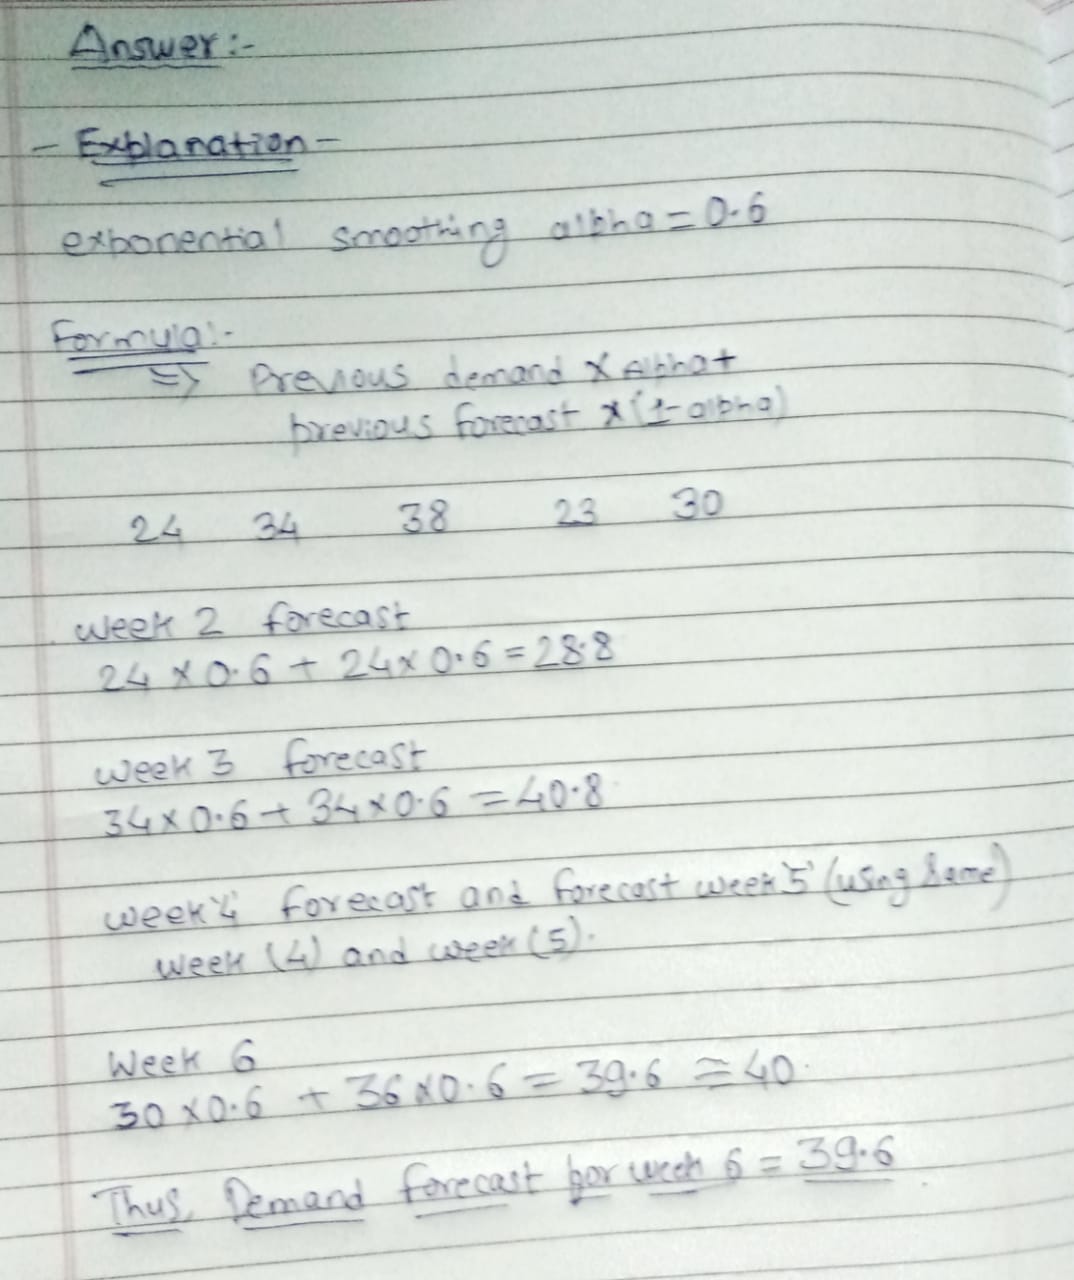 Answer :-
- Explanation -
exponential smoothing alpha = 0.6
Formula :-
=> Previous demand x Alpha +
previous forecast x (1- alpha)
24 34 38 23 30
week 2 forecast
24 x 0.6 + 24 x 0.6 = 28.8
week 3 forecast
34 x 0.6 + 34 x 0.6 = 40.8
week 4 forecast and forecast week 5 (using same)
week (4) and week (5).
Week 6
30 x 0.6 + 36 x 0.6 = 39.6 ≅ 40.
Thus, Demand forecast for week 6 = 39.6